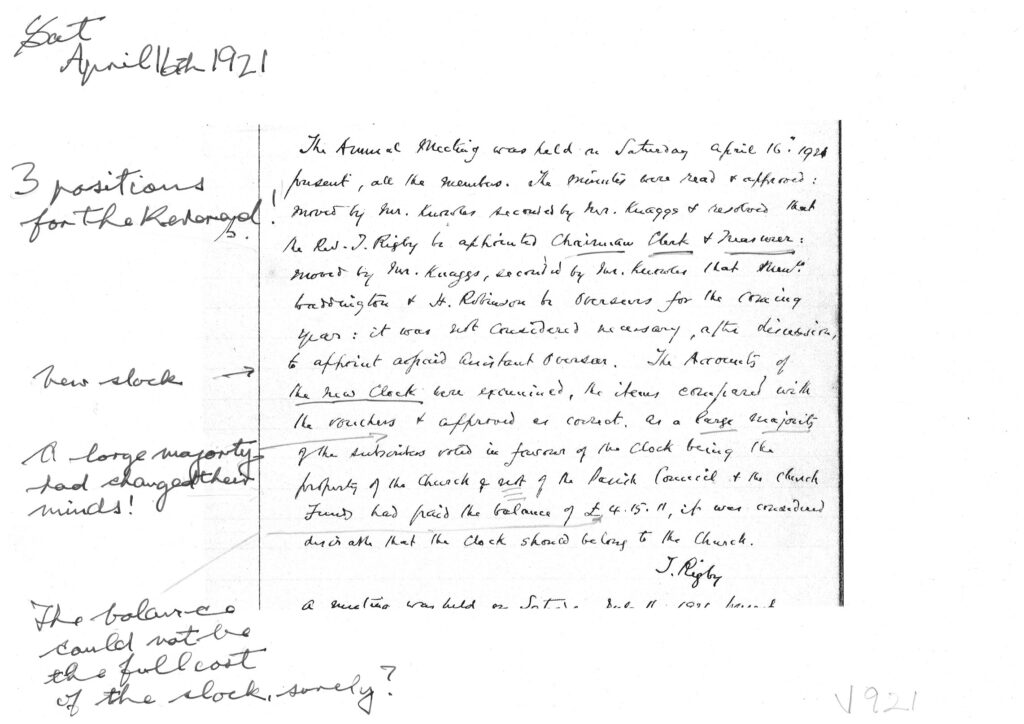 Sat
April 16th 1921
The Annual Meeting was held on Saturday April 16th. 1921
present, all the members. The minutes were read & approved:
moved by Mr. Knowles seconded by Mr. Knaggs & resolved that
the Rev. J. Rigby be appointed Chairman Clerk & Treasurer:
moved by Mr. Knaggs, seconded by Mr. Knowles that
Waddington & H. Robinson be Overseers for the coming
year: it was not considered necessary, after discussion,
to appoint a paid Assistant Overseer. The Accounts of
the new Clock were examined, the items compared with
the vouchers & approved as correct. As a large majority
of the subscribers voted in favour of the Clock being the
property of the Church & not of the Parish Council & the Church
Funds had paid the balance of £4.15.11, it was considered
desirable that the Clock should belong to the Church.
J. Rigby
A meeting was held on 1921
3 positions
for the Reverend!
New clock
A large majority
had changed their
minds!
The balance
could not be
the full cost
of the clock, surely?
1921